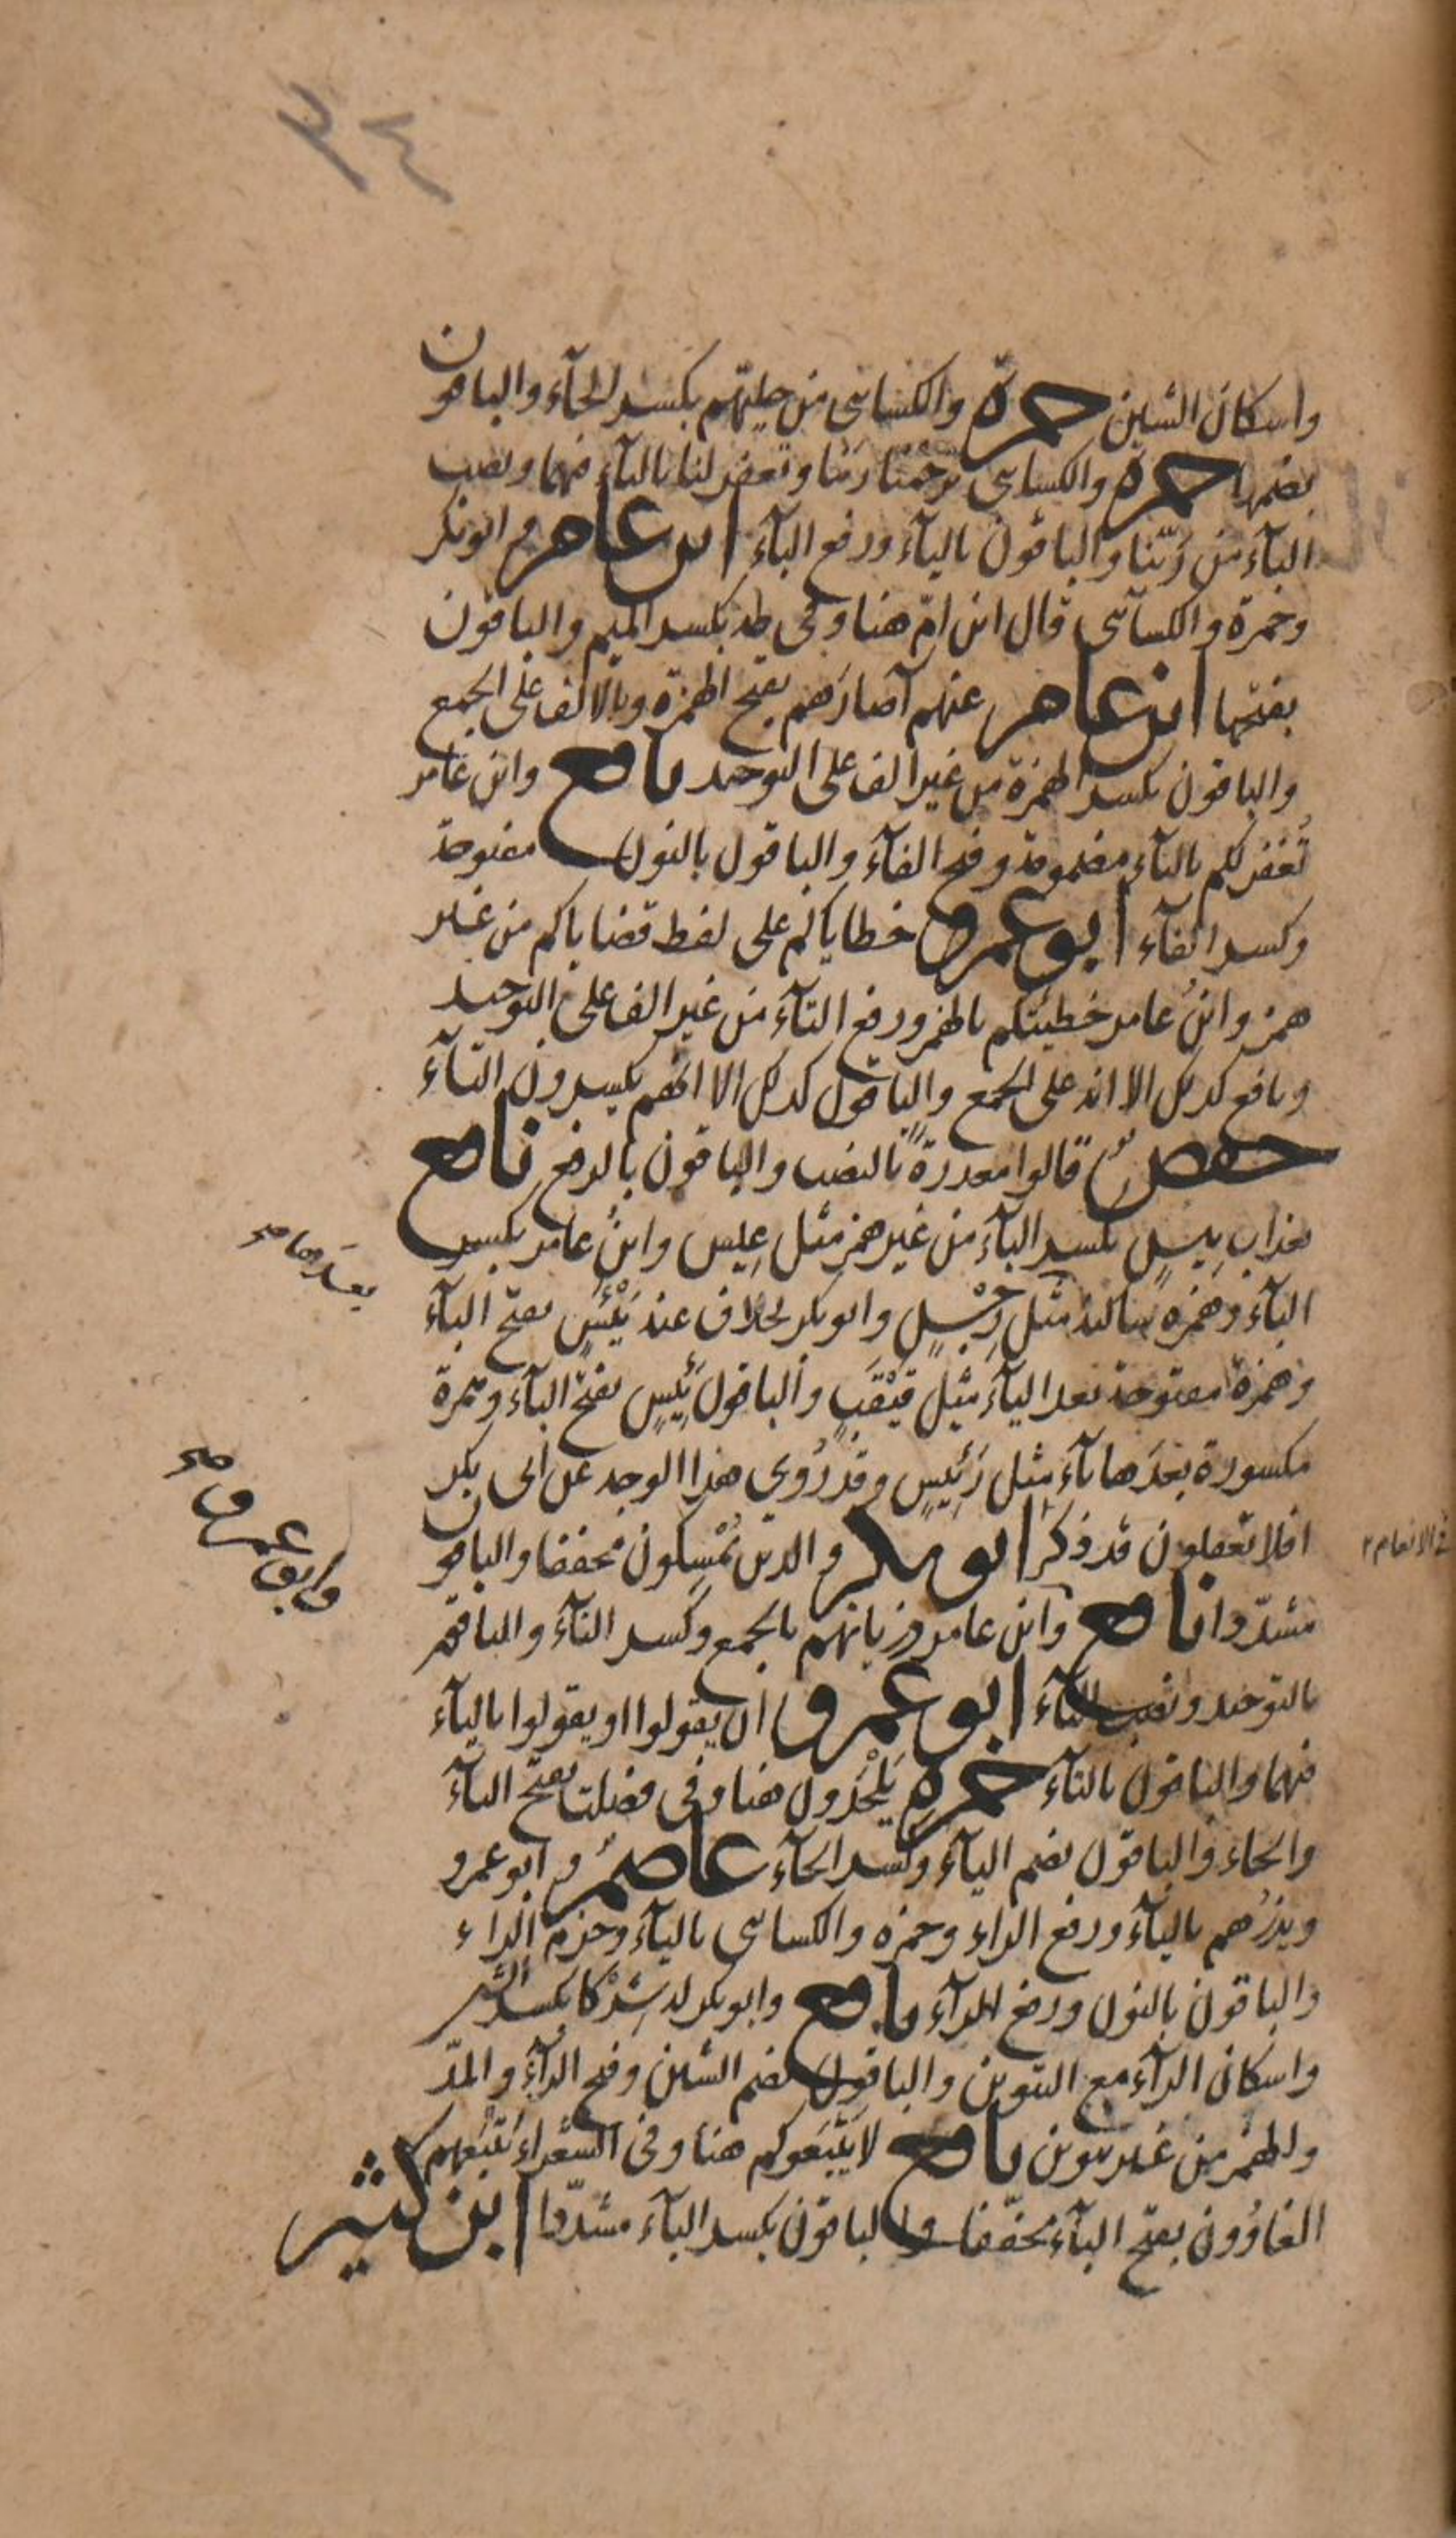 ٣٤
واسكان الشين حمزة والكسائى من حليّهم بكسر الحآء والباقون
بضمها حمزة والكسائى ترحمنا ربّنا وتغفر لنا بالتآء فيهما ونصب
البآء من رَبَّنا والباقون باليآء ورفع البآء ابن عامر وابو بكر
وحمزة والكسآئى قال ابن امِّ هنا وفى طه بكسر الميم والباقون
بفتحها ابن عامر عنهم آصارَهم بفتح الهمزة وبالالف على الجمع
والباقون بكسر الهمزة من غير الف على التوحيد نافع وابن عامر
تُغفَر لكم بالتآء مضمومة وفتح الفآء والباقون بالنون مفتوحة
وكسر الفآء ابو عمرو خطاياكم على لفظ قضاياكم من غير
همز وابنُ عامر خطيئتُكم بالهمز ورفع التآء من غير الف على التوحيد
ونافع كذلك الا انه على الجمع والباقون كذلك الا انهم يكسرون التآء
حفص قالوا معذرةً بالنصب والباقون بالرفع نافع
بعذاب بِيسٍ بكسر البآء من غير همز مثل عِيسٍ وابنُ عامر بكسر
البآء وهمزه ساكنة مثل رِجْسٍ وابو بكر بخلاف عنه بَيْئَسٍ بفتح البآء
وهمزة مفتوحة بعد اليآء مثل قَيْقَبٍ والباقون بَئِيسٍ بفتح البآء وهمزة
مكسورة بعدَها يآء مثل رَئِيسٍ وقد رُوِي هذا الوجه عن ابى بكر
افلا تعقلون قد ذكر ابو بكر والذين يُمْسِكون مخففا والباقون
مشدّدا نافع وابن عامر ذرياتهم بالجمع وكسر التآء والباقون
بالتوحيد ونصب التآء ابو عمرو ان يقولوا او يقولوا باليآء
فيهما والباقون بالتآء حمزة يَلْحَدون هنا وفى فصلت بفتح اليآء
والحاء والباقون بضم اليآء وكسر الحآء عاصمٌ وابو عمرو
ويذرُهم باليآء ورفع الراء وحمزه والكسائى باليآء وجزم الراء
والباقون بالنون ورفع الرآء نافع وابو بكر له شِرْكا بكسر الشين
واسكان الرآء مع التنوين والباقون بضم الشين وفتح الرآء والمدّ
والهمز من غير تنوين نافع لا يَتْبَعوكم هنا وفى الشعراء يَتْبَعُهم
الغاوُون بفتح البآء مخفّفا والباقون بكسر البآء مشدّدا ابن كثير
بعدَها صح
وابو عمرو صح
فى الانعام